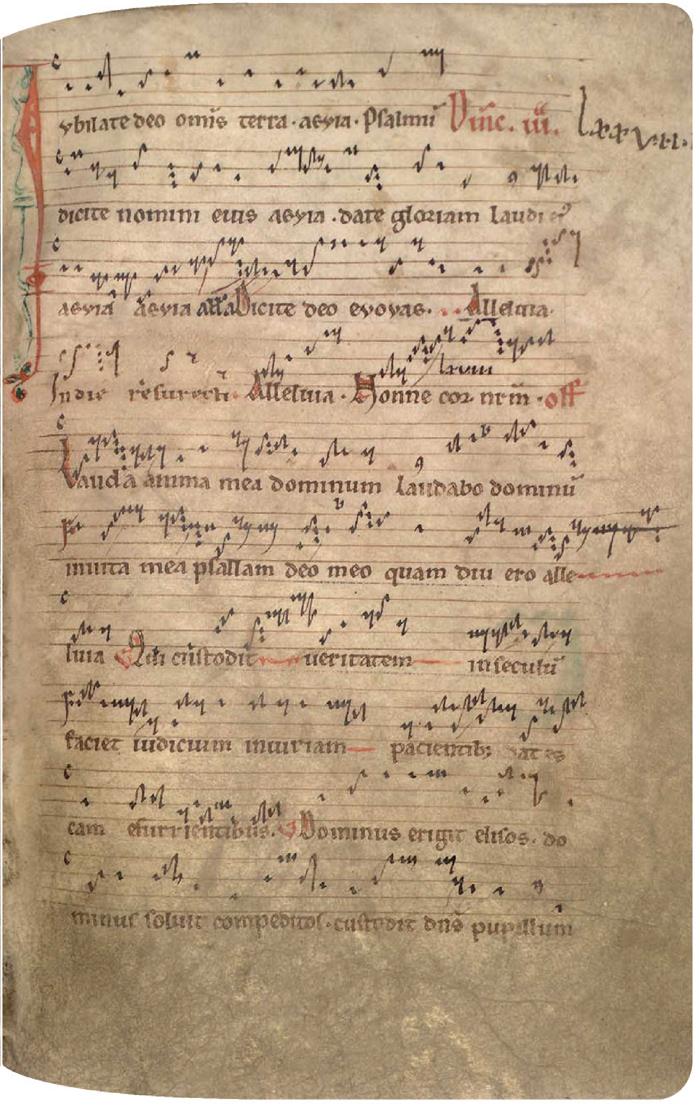 Iybilate deo omīs terra · aeyia · Psalmū Diīic. iii. lxxviii.
dicite nomini eius aeyia · date gloriam laudi ei᷒
aeyia aeyia aeyia Dicite deo evovae · Alleluia ·
In die resurecti Alleluia · Nonne cor nrm̄ · off
Lauda anima mea dominum laudabo dominū
inuita mea psallam deo meo quam diu ero alle
luia Qui custodit ueritatem in seculū
faciet iudicium iniuriam pacientib; dat es
cam esurrientibus. Dominus erigit elisos. do
minus soluit compeditos · custodit dn̄s pupillum